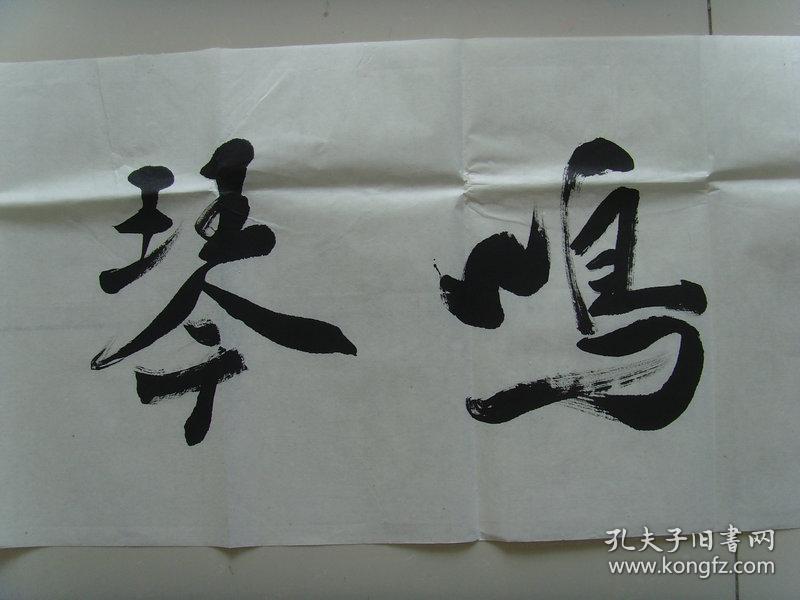 鳴琴
孔夫子旧書网
www.kongfz.com